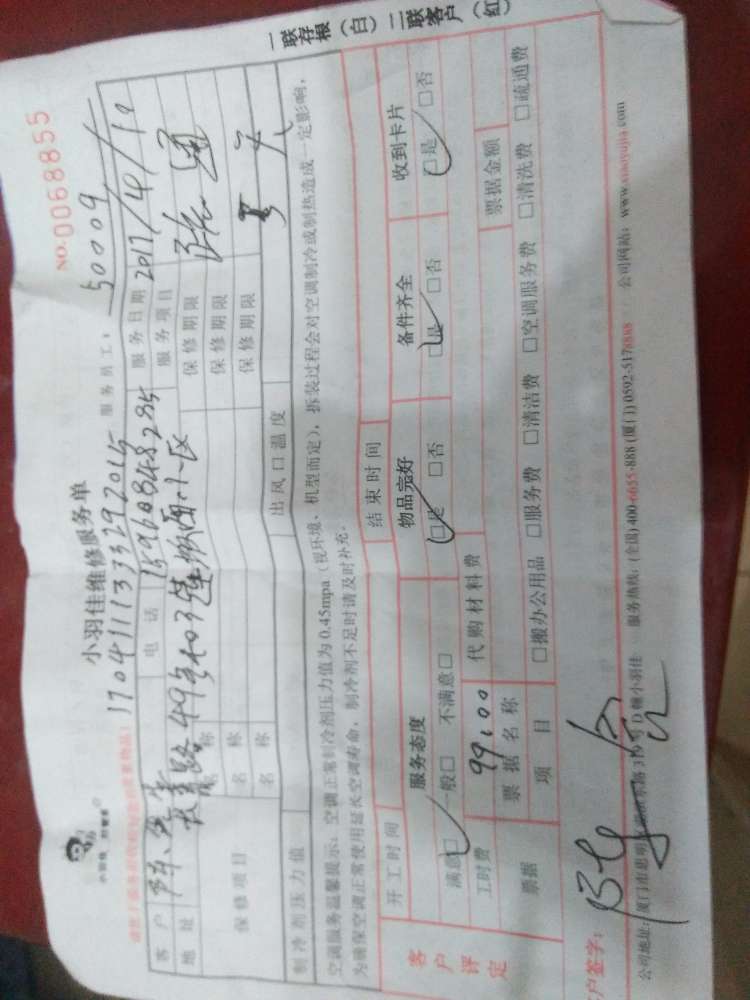 小羽佳维修服务单
NO.0068855
17041113329 2015 服务员工: 50009
客户 电话 15960848285 服务日期 2017/4/12
地址 49号 403 小区 服务项目
保修项目 名称 保修期限
名称 保修期限
名称 保修期限
制冷剂压力值 出风口温度
空调服务温馨提示:空调正常制冷剂压力值为0.45mpa(视环境、机型而定),拆装过程会对空调制冷或制热造成一定影响,
为确保空调正常使用延长空调寿命,制冷剂不足时请及时补充。
客户评定
开工时间 结束时间
服务态度 物品完好 备件齐全 收到卡片
满意□ 一般□ 不满意□ □是 □否 □是 □否 □是 □否
工时费 99.00 代购材料费
票据 票据名称 票据金额
项目 □搬办公用品 □服务费 □清洁费 □空调服务费 □清洗费 □疏通费
客户签字:
公司地址:厦门市思明区 D幢小羽佳 服务热线:(全国)400-6655-888 (厦门)0592-5178888 公司网站:www.xiaoyujia.com
一联存根(白)二联客户(红)